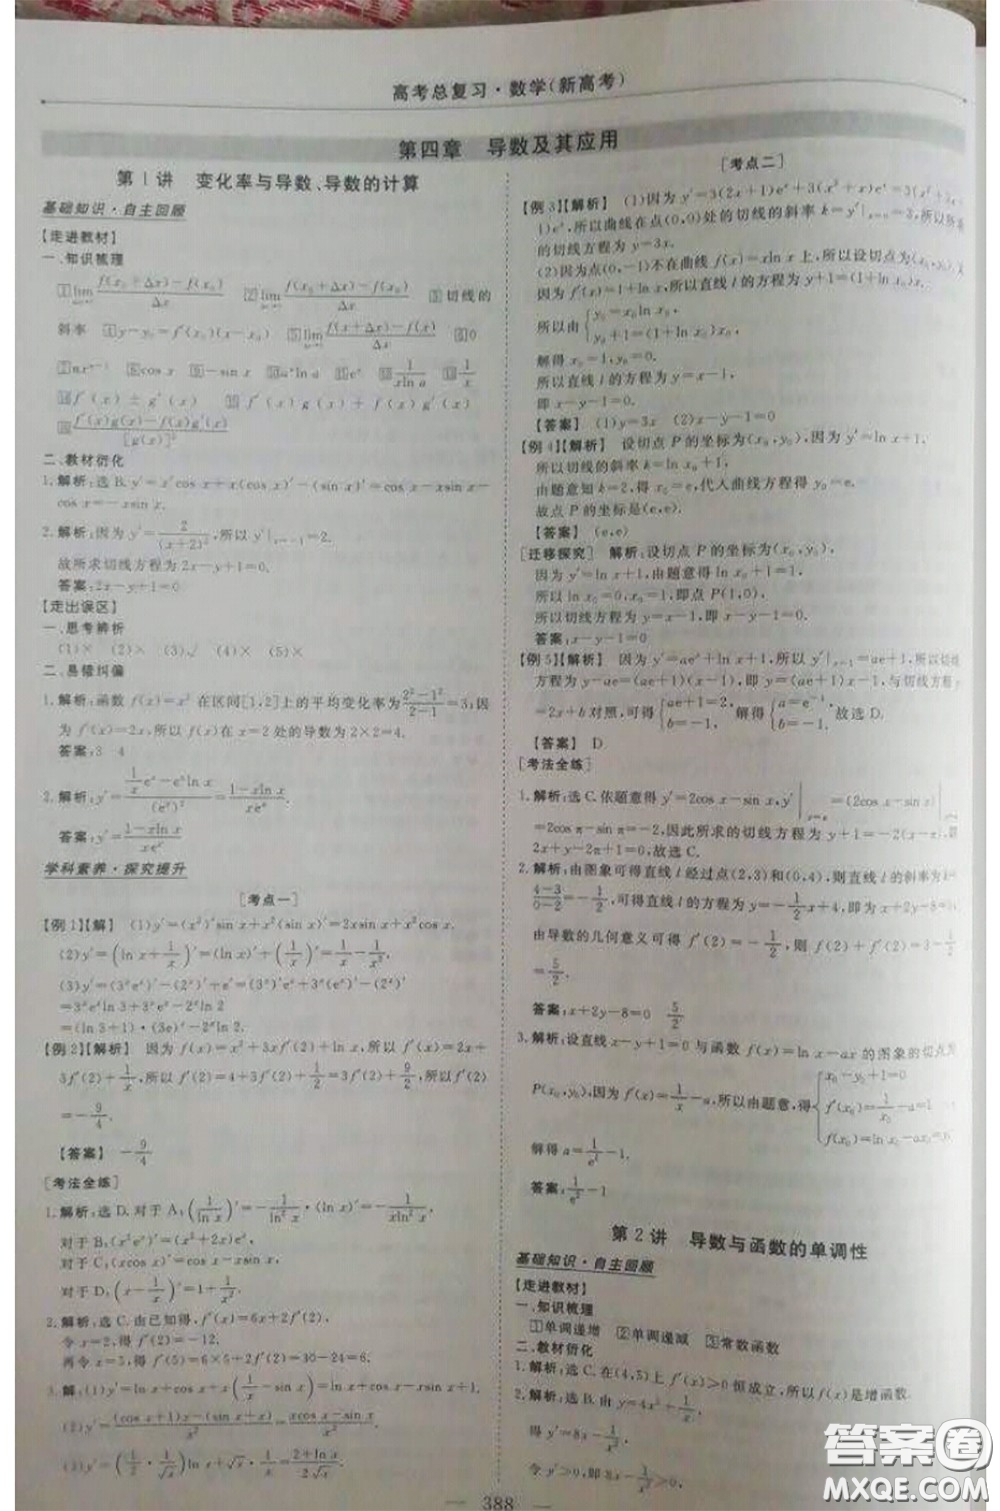 高考总复习·数学(新高考)
第四章 导数及其应用
第1讲 变化率与导数、导数的计算
基础知识·自主回顾
【走进教材】
一、知识梳理
切线的
斜率 ④y-y₀=f′(x₀)(x-x₀)
二、教材衍化
1.解析:选B.y′=x′cos x+x(cos x)′-(sin x)′=cos x-xsin x-
cos x=-xsin x.
2.解析:因为y′=2/(x+2)²,所以y′|ₓ₌₋₁=2.
故所求切线方程为2x-y+1=0.
答案:2x-y+1=0
【走出误区】
一、思考辨析
(1)× (2)× (3)√ (4)× (5)×
二、易错纠偏
1.解析:函数f(x)=x²在区间[1,2]上的平均变化率为(2²-1²)/(2-1)=3;因
为f′(x)=2x,所以f(x)在x=2处的导数为2×2=4.
答案:3 4
2.解析:y′=(1/x·eˣ-eˣln x)/(eˣ)²=(1-xln x)/(xeˣ).
答案:y′=(1-xln x)/(xeˣ)
学科素养·探究提升
[考点一]
【例1】【解】 (1)y′=(x²)′sin x+x²(sin x)′=2xsin x+x²cos x.
(2)y′=(ln x+1/x)′=(ln x)′+(1/x)′=1/x-1/x².
(3)y′=(3ˣeˣ)′-(2ˣ)′+e′=(3ˣ)′eˣ+3ˣ(eˣ)′-(2ˣ)′
=3ˣeˣln 3+3ˣeˣ-2ˣln 2
=(ln 3+1)·(3e)ˣ-2ˣln 2.
【例2】【解析】 因为f(x)=x²+3xf′(2)+ln x,所以f′(x)=2x+
3f′(2)+1/x,所以f′(2)=4+3f′(2)+1/2=3f′(2)+9/2,所以f′(2)
=-9/4.
【答案】 -9/4
[考法全练]
1.解析:选D.对于A,(1/ln x)′=-1/ln²x·1/x=-1/(xln²x).
对于B,(x²eˣ)′=(x²+2x)eˣ.
对于C,(xcos x)′=cos x-xsin x.
对于D,(x-1/x)′=1+1/x².
2.解析:选C.由已知得,f′(x)=6x+2f′(2),
令x=2,得f′(2)=-12.
再令x=5,得f′(5)=6×5+2f′(2)=30-24=6.
3.解:(1)y′=
(2)y′=
(3)y′=
[考点二]
【例3】【解析】 (1)因为y′=3(2x+1)eˣ+3(x²+x)eˣ=3(x²+
1)eˣ,所以曲线在点(0,0)处的切线的斜率k=y′|ₓ₌₀=3,所以所求
的切线方程为y=3x.
(2)因为点(0,-1)不在曲线f(x)=xln x上,所以设切点为(x₀,y₀).又
因为f′(x)=1+ln x,所以直线l的方程为y+1=(1+ln x₀)x.
所以由{y₀=x₀ln x₀,
y₀+1=(1+ln x₀)x₀,
解得x₀=1,y₀=0.
所以直线l的方程为y=x-1,
即x-y-1=0.
【答案】 (1)y=3x (2)x-y-1=0
【例4】【解析】 设切点P的坐标为(x₀,y₀),因为y′=ln x+1,
所以切线的斜率k=ln x₀+1,
由题意知k=2,得x₀=e,代入曲线方程得y₀=e.
故点P的坐标是(e,e).
【答案】 (e,e)
[迁移探究] 解析:设切点P的坐标为(x₀,y₀),
因为y′=ln x+1,由题意得ln x₀+1=1,
所以ln x₀=0,x₀=1,即点P(1,0),
所以切线方程为y=x-1,即x-y-1=0.
答案:x-y-1=0
【例5】【解析】 因为y′=aeˣ+ln x+1,所以y′|ₓ₌₁=ae+1,所以切线
方程为y-ae=(ae+1)(x-1),即y=(ae+1)x-1,与切线方程y
=2x+b对照,可得{ae+1=2, b=-1, 解得{a=e⁻¹, b=-1, 故选D.
【答案】 D
[考法全练]
1.解析:选C.依题意得y′=2cos x-sin x,y′|ₓ₌π=(2cos x-sin x)|
=2cos π-sin π=-2,因此所求的切线方程为y+1=-2(x-π),即
2x+y-2π+1=0,故选C.
2.解析:由图象可得直线l经过点(2,3)和(0,4),则直线l的斜率为k=
(4-3)/(0-2)=-1/2,可得直线l的方程为y=-1/2x+4,即为x+2y-8=0,
由导数的几何意义可得f′(2)=-1/2,则f(2)+f′(2)=3-1/2
=5/2.
答案:x+2y-8=0 5/2
3.解析:设直线x-y+1=0与函数f(x)=ln x-ax的图象的切点为
P(x₀,y₀),因为f′(x)=1/x-a,所以由题意,得{x₀-y₀+1=0,
f′(x₀)=1/x₀-a=1,
f(x₀)=ln x₀-ax₀=y₀,
解得a=1/e²-1.
答案:1/e²-1
第2讲 导数与函数的单调性
基础知识·自主回顾
【走进教材】
一、知识梳理
①单调递增 ②单调递减 ③常数函数
二、教材衍化
1.解析:选C.在(4,5)上f′(x)>0恒成立,所以f(x)是增函数.
2.解析:选B.由y=4x²+1/x,
得y′=8x-1/x²,
令y′>0,即8x-
388
答案圈
MXQE.COM